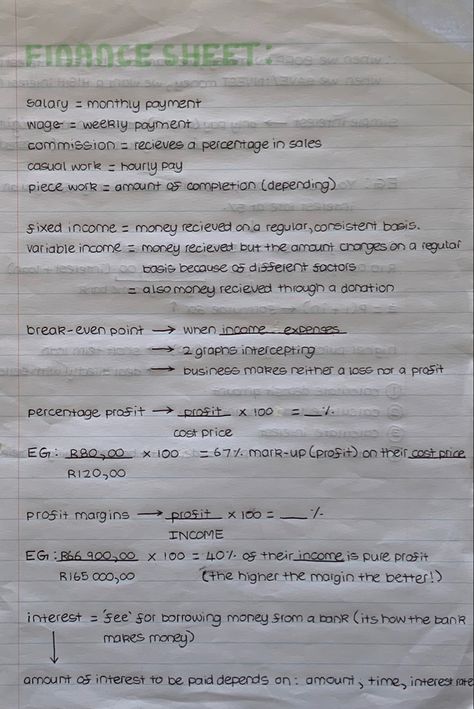 FINANCE SHEET:
salary = monthly payment
wage = weekly payment
commission = recieves a percentage in sales
casual work = hourly pay
piece work = amount of completion (depending)
fixed income = money recieved on a regular, consistent basis.
variable income = money recieved but the amount changes on a regular
basis because of different factors
= also money recieved through a donation
break-even point → when income = expenses
→ 2 graphs intercepting
→ business makes neither a loss nor a profit
percentage profit → profit x 100 = __%
cost price
EG: R80,00 x 100 = 67% mark-up (profit) on their cost price
R120,00
profit margins → profit x 100 = __ %
INCOME
EG: R66 900,00 x 100 = 40% of their income is pure profit
R165 000,00 (the higher the margin the better!)
interest = 'fee' for borrowing money from a bank (its how the bank
makes money)
↓
amount of interest to be paid depends on: amount, time, interest rate